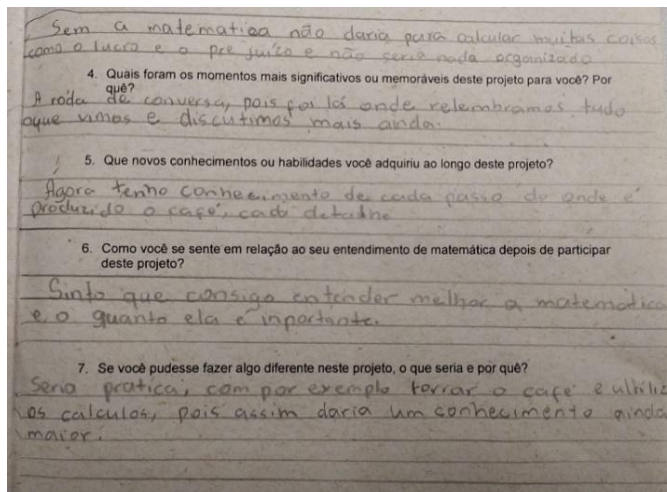 Sem a matematica não daria para calcular muitas coisas
como o lucro e o prejuizo e não seria nada orgainizado
4. Quais foram os momentos mais significativos ou memoráveis deste projeto para você? Por
quê?
A roda de conversa, pois foi lá onde relembramos tudo
oque vimos e discutimos mais ainda.
5. Que novos conhecimentos ou habilidades você adquiriu ao longo deste projeto?
Agora tenho conhecimento de cada passo de onde é
produzido o café, cada detalhe
6. Como você se sente em relação ao seu entendimento de matemática depois de participar
deste projeto?
Sinto que consigo entender melhor a matematica
e o quanto ela é inportante.
7. Se você pudesse fazer algo diferente neste projeto, o que seria e por quê?
Seria pratica, com por exemplo torrar o café e ultiliz
os calculos, pois assim daria um conhecimento ainda
maior.